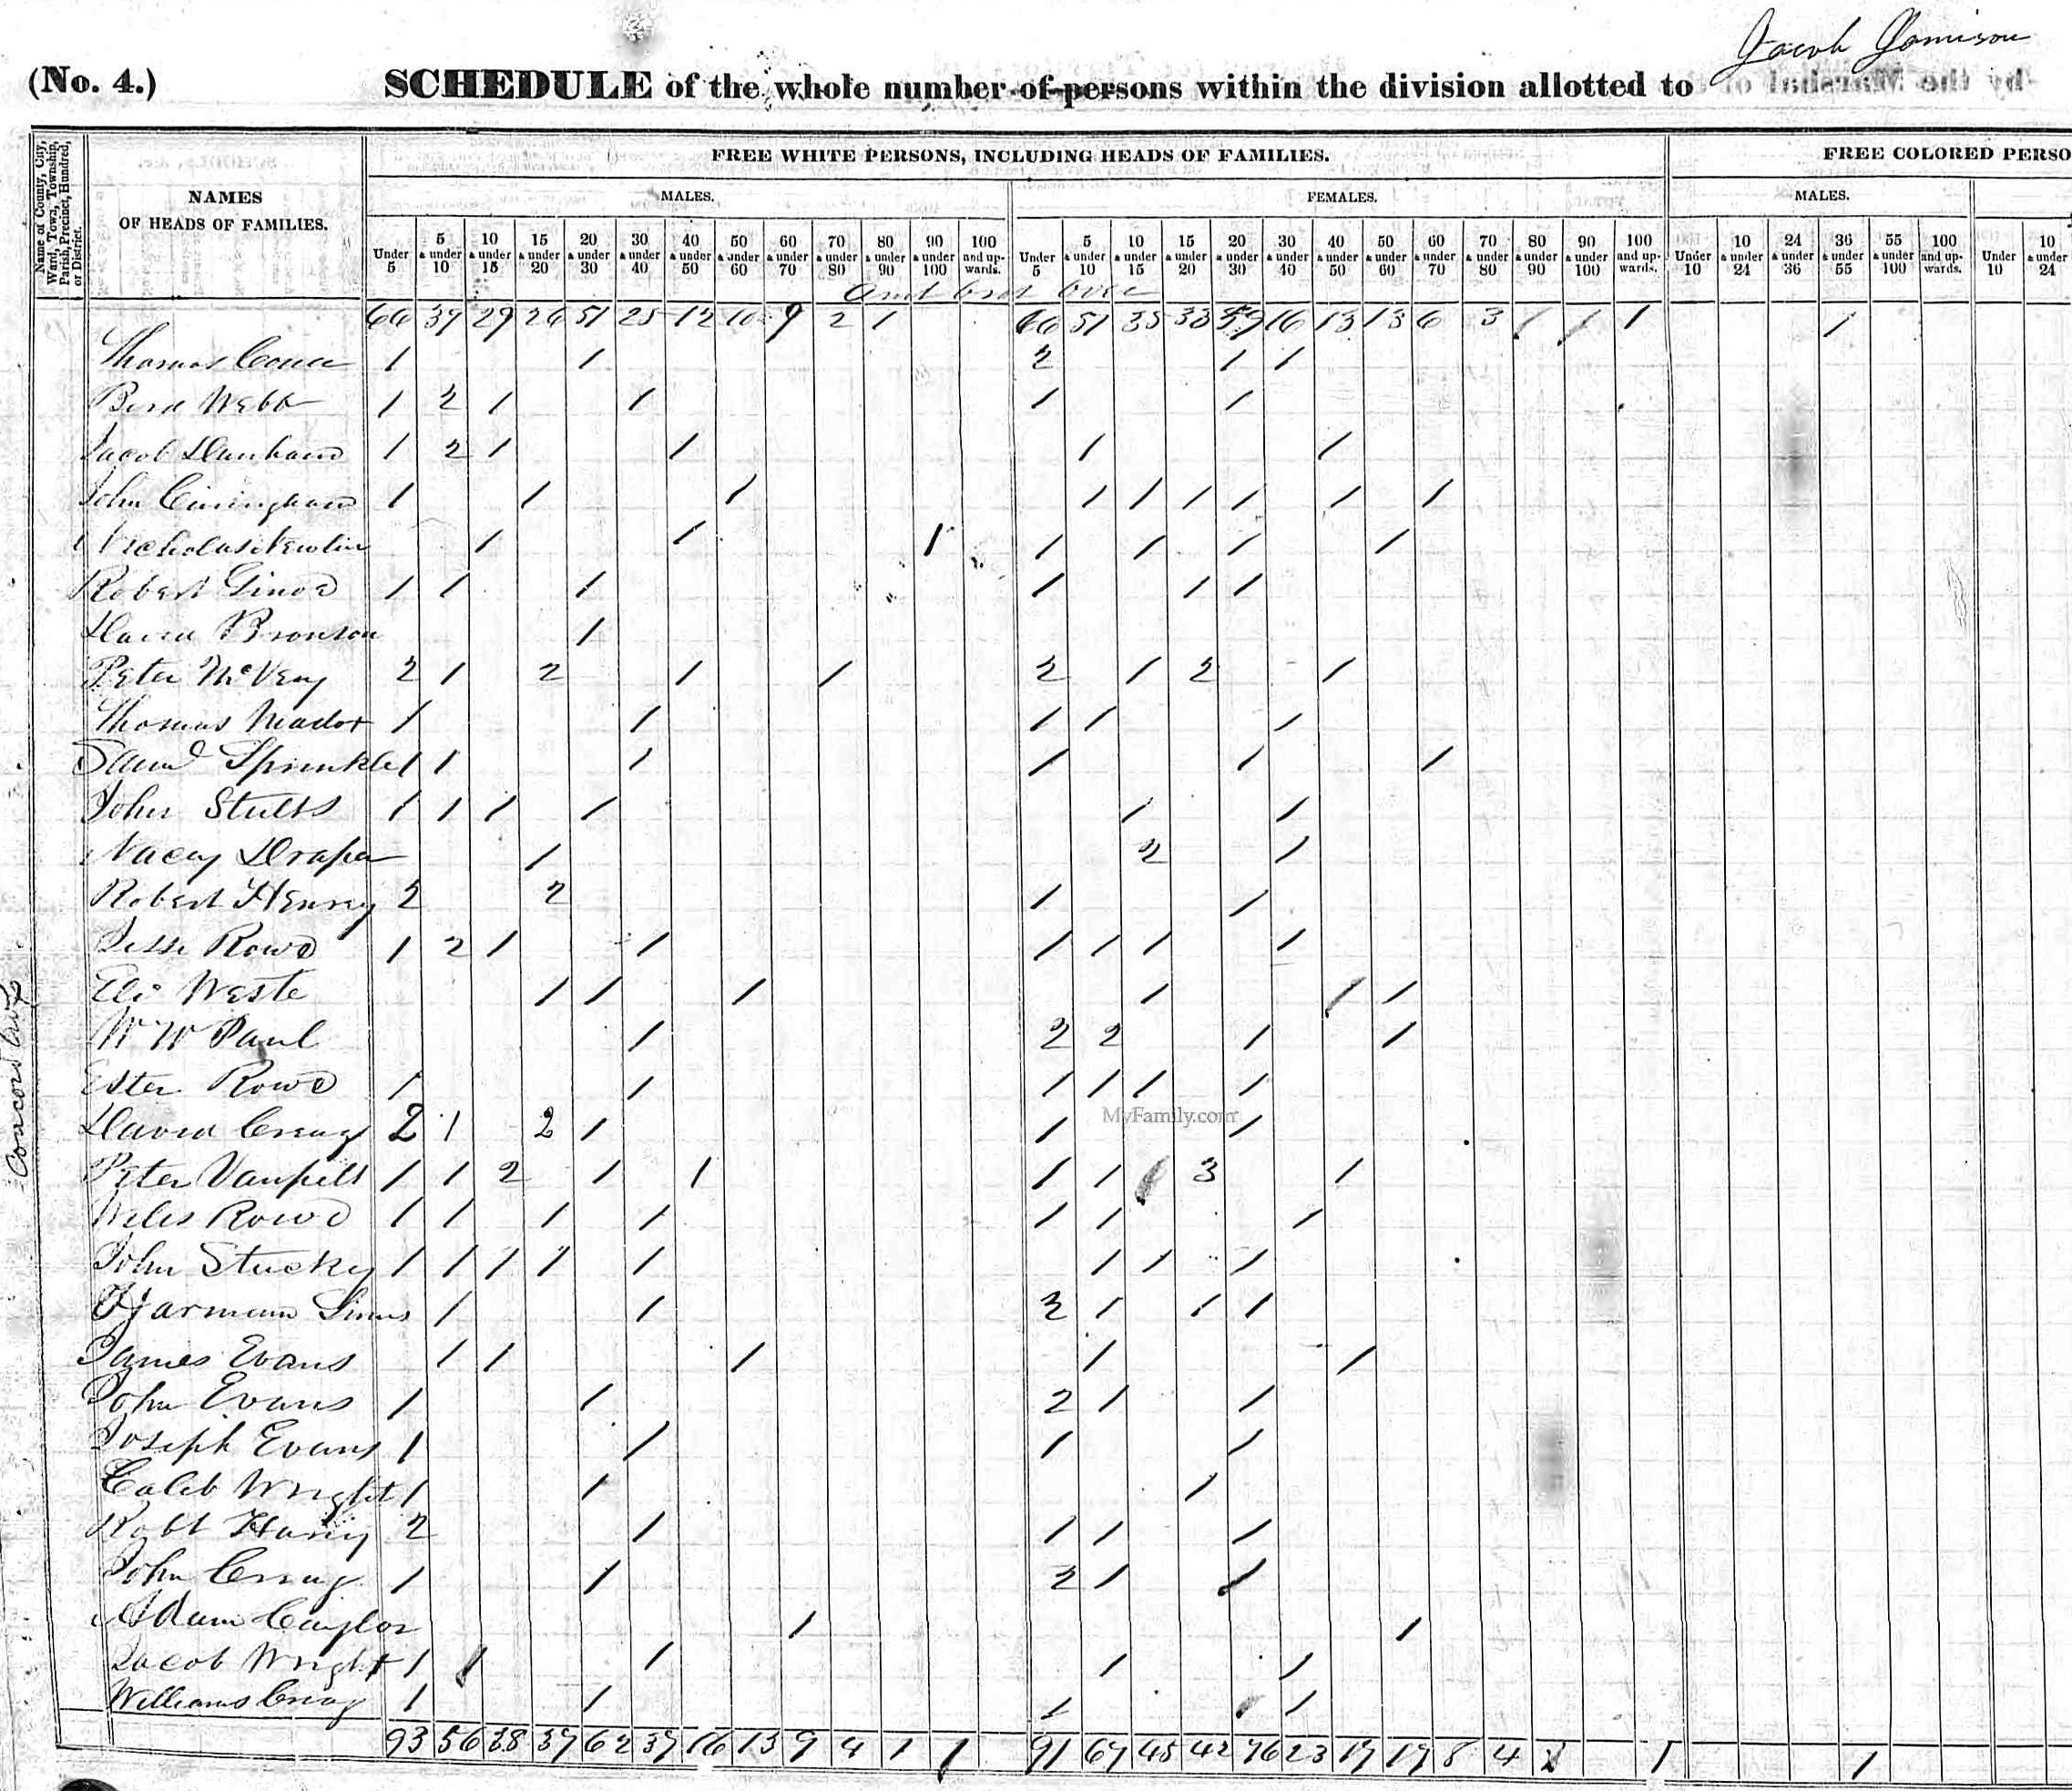 Jacob Jamison
(No. 4.) SCHEDULE of the whole number of persons within the division allotted to
by the Marshal of
Name of County, City, Ward, Town, Township, Parish, Precinct, Hundred, or District.
NAMES OF HEADS OF FAMILIES.
FREE WHITE PERSONS, INCLUDING HEADS OF FAMILIES.
FREE COLORED PERSO
MALES. FEMALES. MALES.
Under 5 5 & under 10 10 & under 15 15 & under 20 20 & under 30 30 & under 40 40 & under 50 50 & under 60 60 & under 70 70 & under 80 80 & under 90 90 & under 100 100 and upwards. Under 5 5 & under 10 10 & under 15 15 & under 20 20 & under 30 30 & under 40 40 & under 50 50 & under 60 60 & under 70 70 & under 80 80 & under 90 90 & under 100 100 and upwards. Under 10 10 & under 24 24 & under 36 36 & under 55 55 & under 100 100 and upwards. Under 10 10 & under 24
Amt brot over
66 39 29 26 51 25 12 10 9 2 1 66 51 35 33 59 16 13 13 6 3 1 1 1 1
Thomas 1 1 2 1 1
Webb 1 2 1 1 1 1
Jacob Dunham 1 2 1 1 1 1
John Cuningham 1 1 1 1 1 1 1 1 1
Nicholas Newlin 1 1 1 1 1 1 1
Robert 1 1 1 1 1 1
David Bronson 1
Peter McVey 2 1 2 1 1 2 1 2 1
Thomas Meador 1 1 1 1 1
Saml Sprinkle 1 1 1 1 1 1
John Stults 1 1 1 1 1 1
Draper 1 2 1
Robert Henry 2 2 1 1
Jesse Rowe 1 2 1 1 1 1 1 1
Eli Weste 1 1 1 1 1 1
W W Paul 1 2 2 1 1
Ester Rowe 1 1 1 1 1 1
David Craig 2 1 2 1 1 1
Peter Vanpelt 1 1 2 1 1 1 1 1 3 1
Wiles Rowe 1 1 1 1 1 1 1
John Stuckey 1 1 1 1 1 1 1 1
Harmann Sims 1 1 2 1 1 1
James Evans 1 1 1 1 1
John Evans 1 1 2 1 1
Joseph Evans 1 1 1 1
Caleb Wright 1 1 1
Robt Hany 2 1 1 1 1
John Craig 1 1 2 1 1
Adam Caylor 1 1
Jacob Wright 1 1 1 1 1
Williams Craig 1 1 1 1 1
93 56 38 39 62 39 16 13 9 4 1 1 91 67 45 42 76 23 19 19 8 4 1 1
MyFamily.com